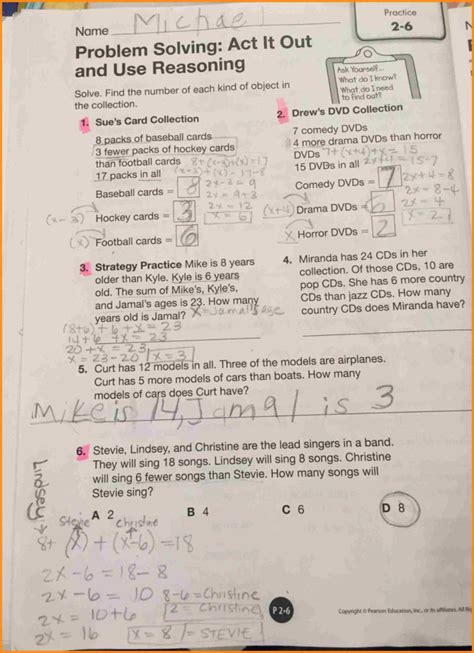 Name Michael
Practice
2-6
Problem Solving: Act It Out
and Use Reasoning
Ask Yourself...
What do I know?
What do I need
to find out?
Solve. Find the number of each kind of object in
the collection.
1. Sue's Card Collection
8 packs of baseball cards
3 fewer packs of hockey cards
than football cards 8+(x-3)+(x)=17
17 packs in all (x-3)+(x)=17-8
2x-3=9
Baseball cards = 8
2x=9+3
2x=12
(x-3) Hockey cards = 3
x=6
(x) Football cards = 6
2. Drew's DVD Collection
7 comedy DVDs
4 more drama DVDs than horror
DVDs 7+(x+4)+x=15
15 DVDs in all 2x+4=15-7
Comedy DVDs = 7 2x+4=8
2x=8-4
(x+4) Drama DVDs = 6 2x=4
x=2
x Horror DVDs = 2
3. Strategy Practice Mike is 8 years
older than Kyle. Kyle is 6 years
old. The sum of Mike's, Kyle's,
and Jamal's ages is 23. How many
years old is Jamal? x=Jamal's age
(8+6)+6+x=23
14+6+x=23
20+x=23
x=23-20 x=3
4. Miranda has 24 CDs in her
collection. Of those CDs, 10 are
pop CDs. She has 6 more country
CDs than jazz CDs. How many
country CDs does Miranda have?
5. Curt has 12 models in all. Three of the models are airplanes.
Curt has 5 more models of cars than boats. How many
models of cars does Curt have?
Mike is 14, Jamal is 3
6. Stevie, Lindsey, and Christine are the lead singers in a band.
They will sing 18 songs. Lindsey will sing 8 songs. Christine
will sing 6 fewer songs than Stevie. How many songs will
Stevie sing?
A 2
B 4
C 6
D 8
Lindsey
Stevie
Christine
8+(x)+(x-6)=18
2x-6=18-8
2x-6=10 8-6=Christine
2x=10+6 2=Christine
2x=16 x=8=STEVIE
P 2-6
Copyright © Pearson Education, Inc., or its affiliates. All Ri